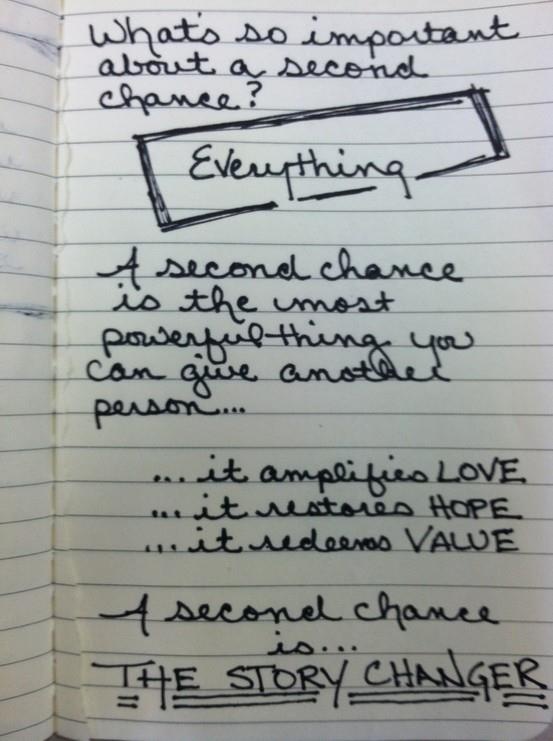 What's so important
about a second
chance?
Everything
A second chance
is the most
powerful thing you
can give another
person....
...it amplifies LOVE
...it restores HOPE
...it redeems VALUE
A second chance
is...
THE STORY CHANGER